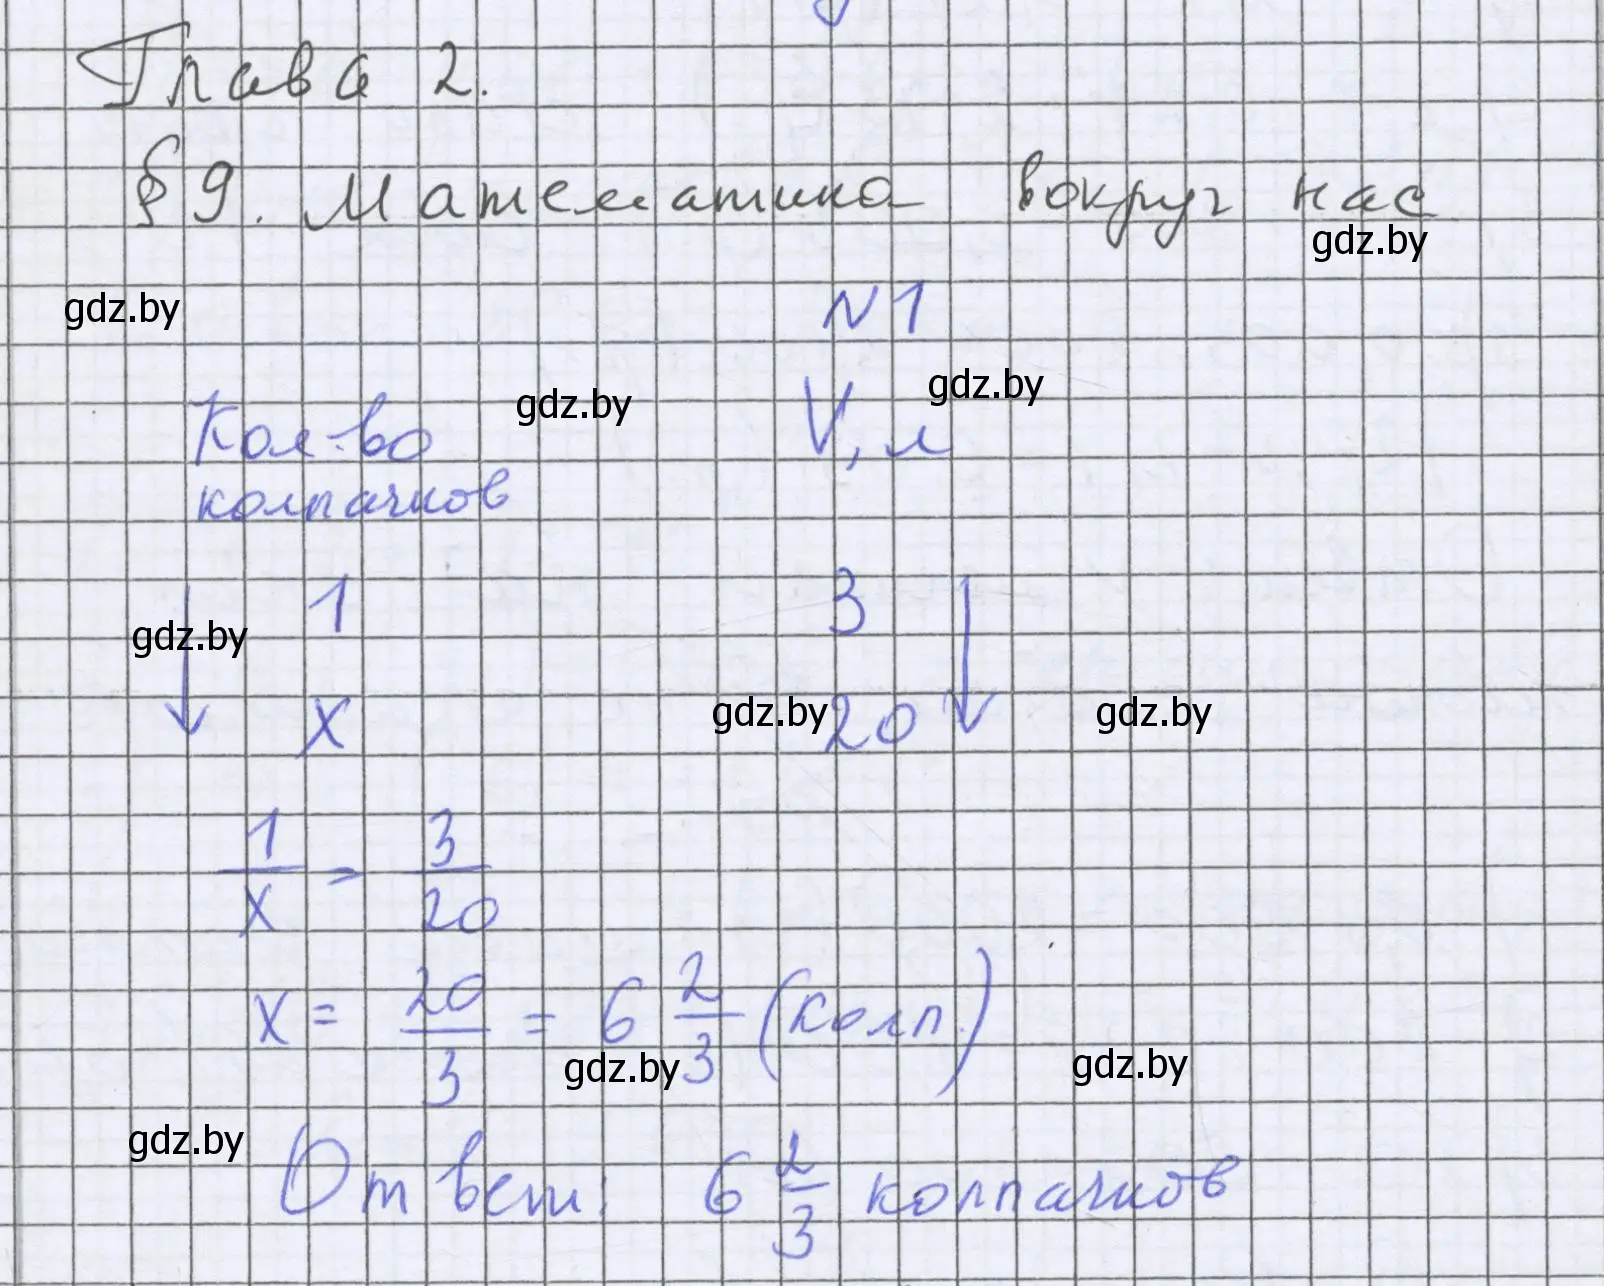 Глава 2.
§ 9. Математика вокруг нас
gdz.by
gdz.by
N 1
gdz.by
gdz.by
Кол-во V, л
колпачков
1 3
gdz.by
x 20
gdz.by
gdz.by
1/x = 3/20
x = 20/3 = 6 2/3 (колп.)
gdz.by
gdz.by
gdz.by
Ответ: 6 2/3 колпачков